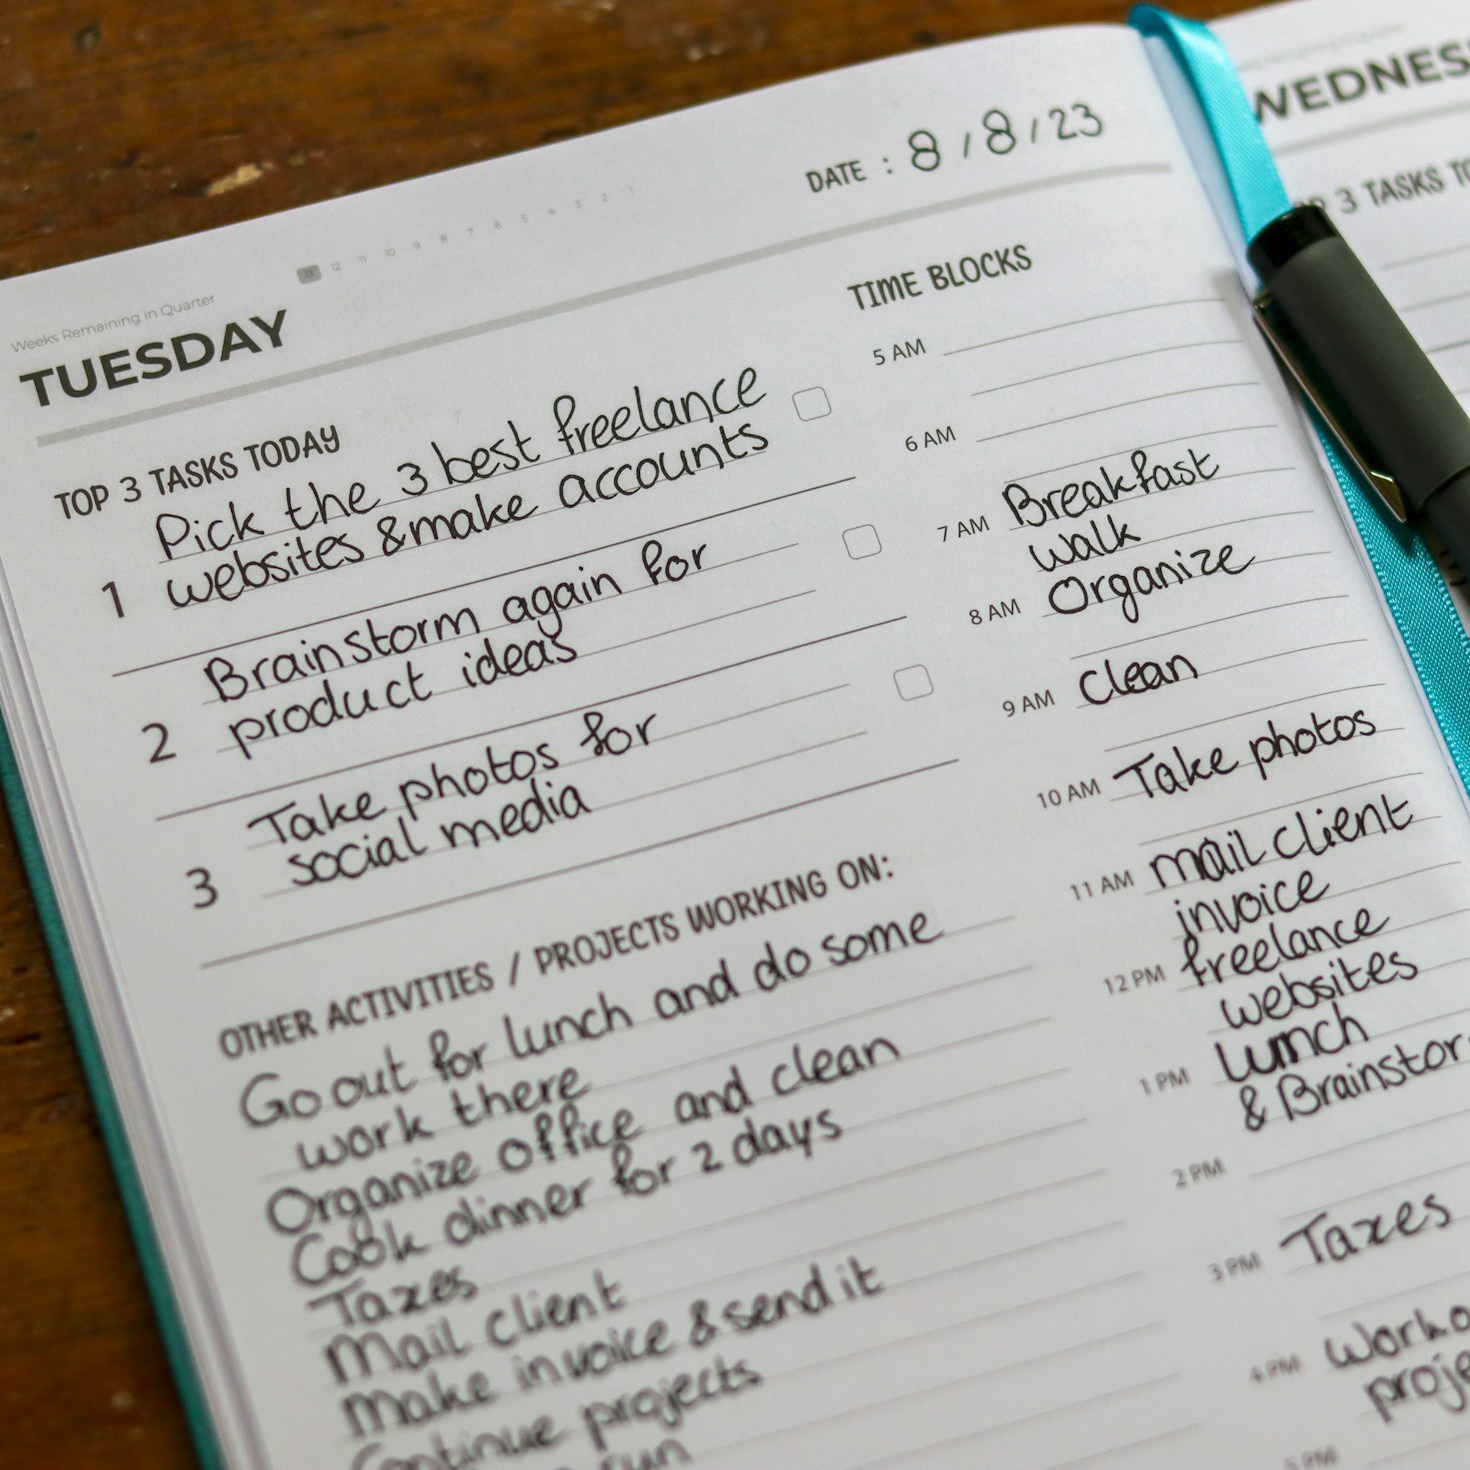 Weeks Remaining in Quarter
13 12 11 10 9 8 7 6 5 4 3 2 1
TUESDAY
DATE : 8 / 8 / 23
TOP 3 TASKS TODAY
1 Pick the 3 best freelance
websites & make accounts
2 Brainstorm again for
product ideas
3 Take photos for
social media
OTHER ACTIVITIES / PROJECTS WORKING ON:
Go out for lunch and do some
work there
Organize office and clean
Cook dinner for 2 days
Taxes
Mail client
Make invoice & send it
Continue projects
run
TIME BLOCKS
5 AM
6 AM
7 AM Breakfast
walk
8 AM Organize
9 AM Clean
10 AM Take photos
11 AM mail client
invoice
12 PM freelance
websites
1 PM Lunch
& Brainstor
2 PM
3 PM Taxes
4 PM Work o
proje
5 PM
WEDNES
P 3 TASKS TO